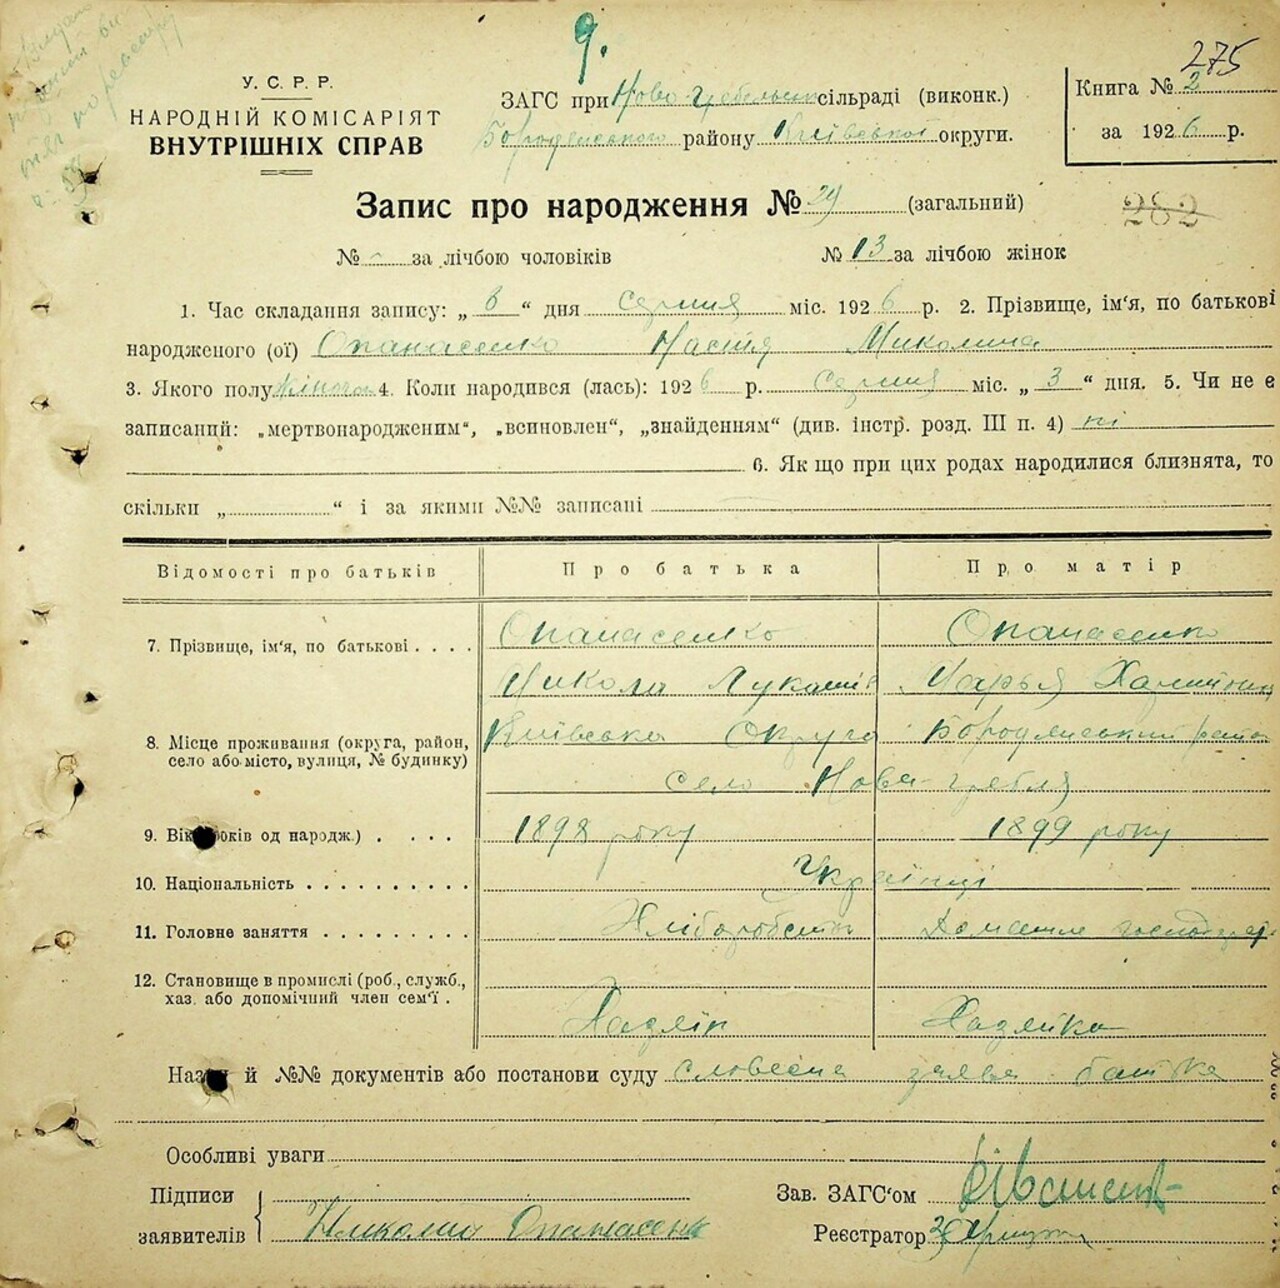 9.
275
У. С. Р. Р.
НАРОДНІЙ КОМІСАРІЯТ
ВНУТРІШНІХ СПРАВ
ЗАГС при Ново Гребельск сільраді (виконк.)
Бородянського району Київської округи.
Книга № 2
за 1926 р.
Запис про народження № 29 (загальний)
282
№ - за лічбою чоловіків № 13 за лічбою жінок
1. Час складання запису: „ 8 “ дня Серпня міс. 1926 р. 2. Прізвище, ім'я, по батькові
народженого (ої) Опанасенко Настя Миколина
3. Якого полу жіночої 4. Коли народився (лась): 1926 р. Серпня міс. „ 3 “ дня. 5. Чи не є
записаний: „мертвонародженим“, „всиновлен“, „знайденням“ (див. інстр. розд. III п. 4) ні
6. Якщо при цих родах народилися близнята, то
скільки „ “ і за якими №№ записані
Відомості про батьків Про батька Про матір
7. Прізвище, ім'я, по батькові . . . . Опанасенко Опанасенко
Микола Лукашів Марья
8. Місце проживання (округа, район, село або місто, вулиця, № будинку) Київська Округа Бородянський район
село Нова-Гребля
9. Вік років од народж.) . . . . 1898 року 1899 року
10. Національність . . . . . . . . . . Українці
11. Головне заняття . . . . . . . . . Хліборобство Домашнє господар
12. Становище в промислі (роб., служб., хаз. або допомічний член сем'ї . Хазяїн Хазяйка
Назви й №№ документів або постанови суду словесна заява батька
Особливі уваги
Підписи
заявителів Николай Опанасенко
Зав. ЗАГС'ом
Реєстратор